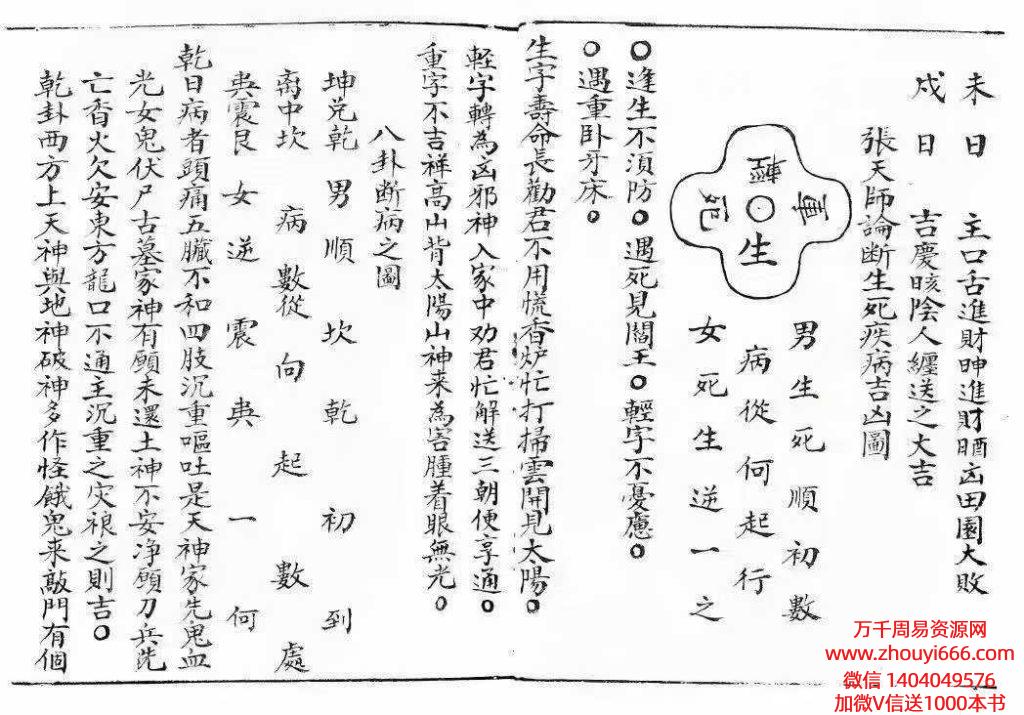 未日 主口舌進財呻進財㖽凶田園大敗
戍日 吉慶晐陰人纏送之大吉
張天師論断生死疾病吉凶圖
輕
重
死
生
男生死順初數
病從何起行
女死生逆一之
○逢生不須防○遇死見閻王○輕字不憂慮○
○遇重卧牙床○
生字壽命長勸君不用慌香炉忙打掃雲開見太陽○
軽字轉為凶邪神入家中劝君忙解送三朝便享通○
重字不吉祥高山背太陽山神来為害腫着眼無光○
八卦断病之圖
坤兑乾男順坎乾初到
离中坎病數從向起數處
㢲震艮女逆震㢲一何
乾日病者頭痛五臟不和四肢沉重嘔吐是天神家先鬼血
光女鬼伏尸古墓家神有願未還土神不安净願刀兵先
亡香火欠安東方龍口不通主沉重之灾禳之則吉○
乾卦西方上天神與地神破神多作怪餓鬼来敲門有個
万千周易资源网
www.zhouyi666.com
微信 1404049576
加微V信送1000本书